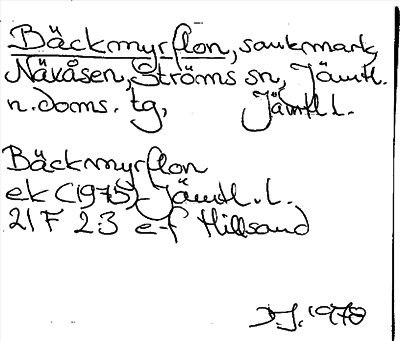 Bäckmyrflon, sankmark,
Nävåsen, Ströms sn, Jämtl.
n. doms. tg, Jämtl l.
Bäckmyrflon
ek (1975) Jämtl. L.
21 F 2:3 e-f Hillsand
1978